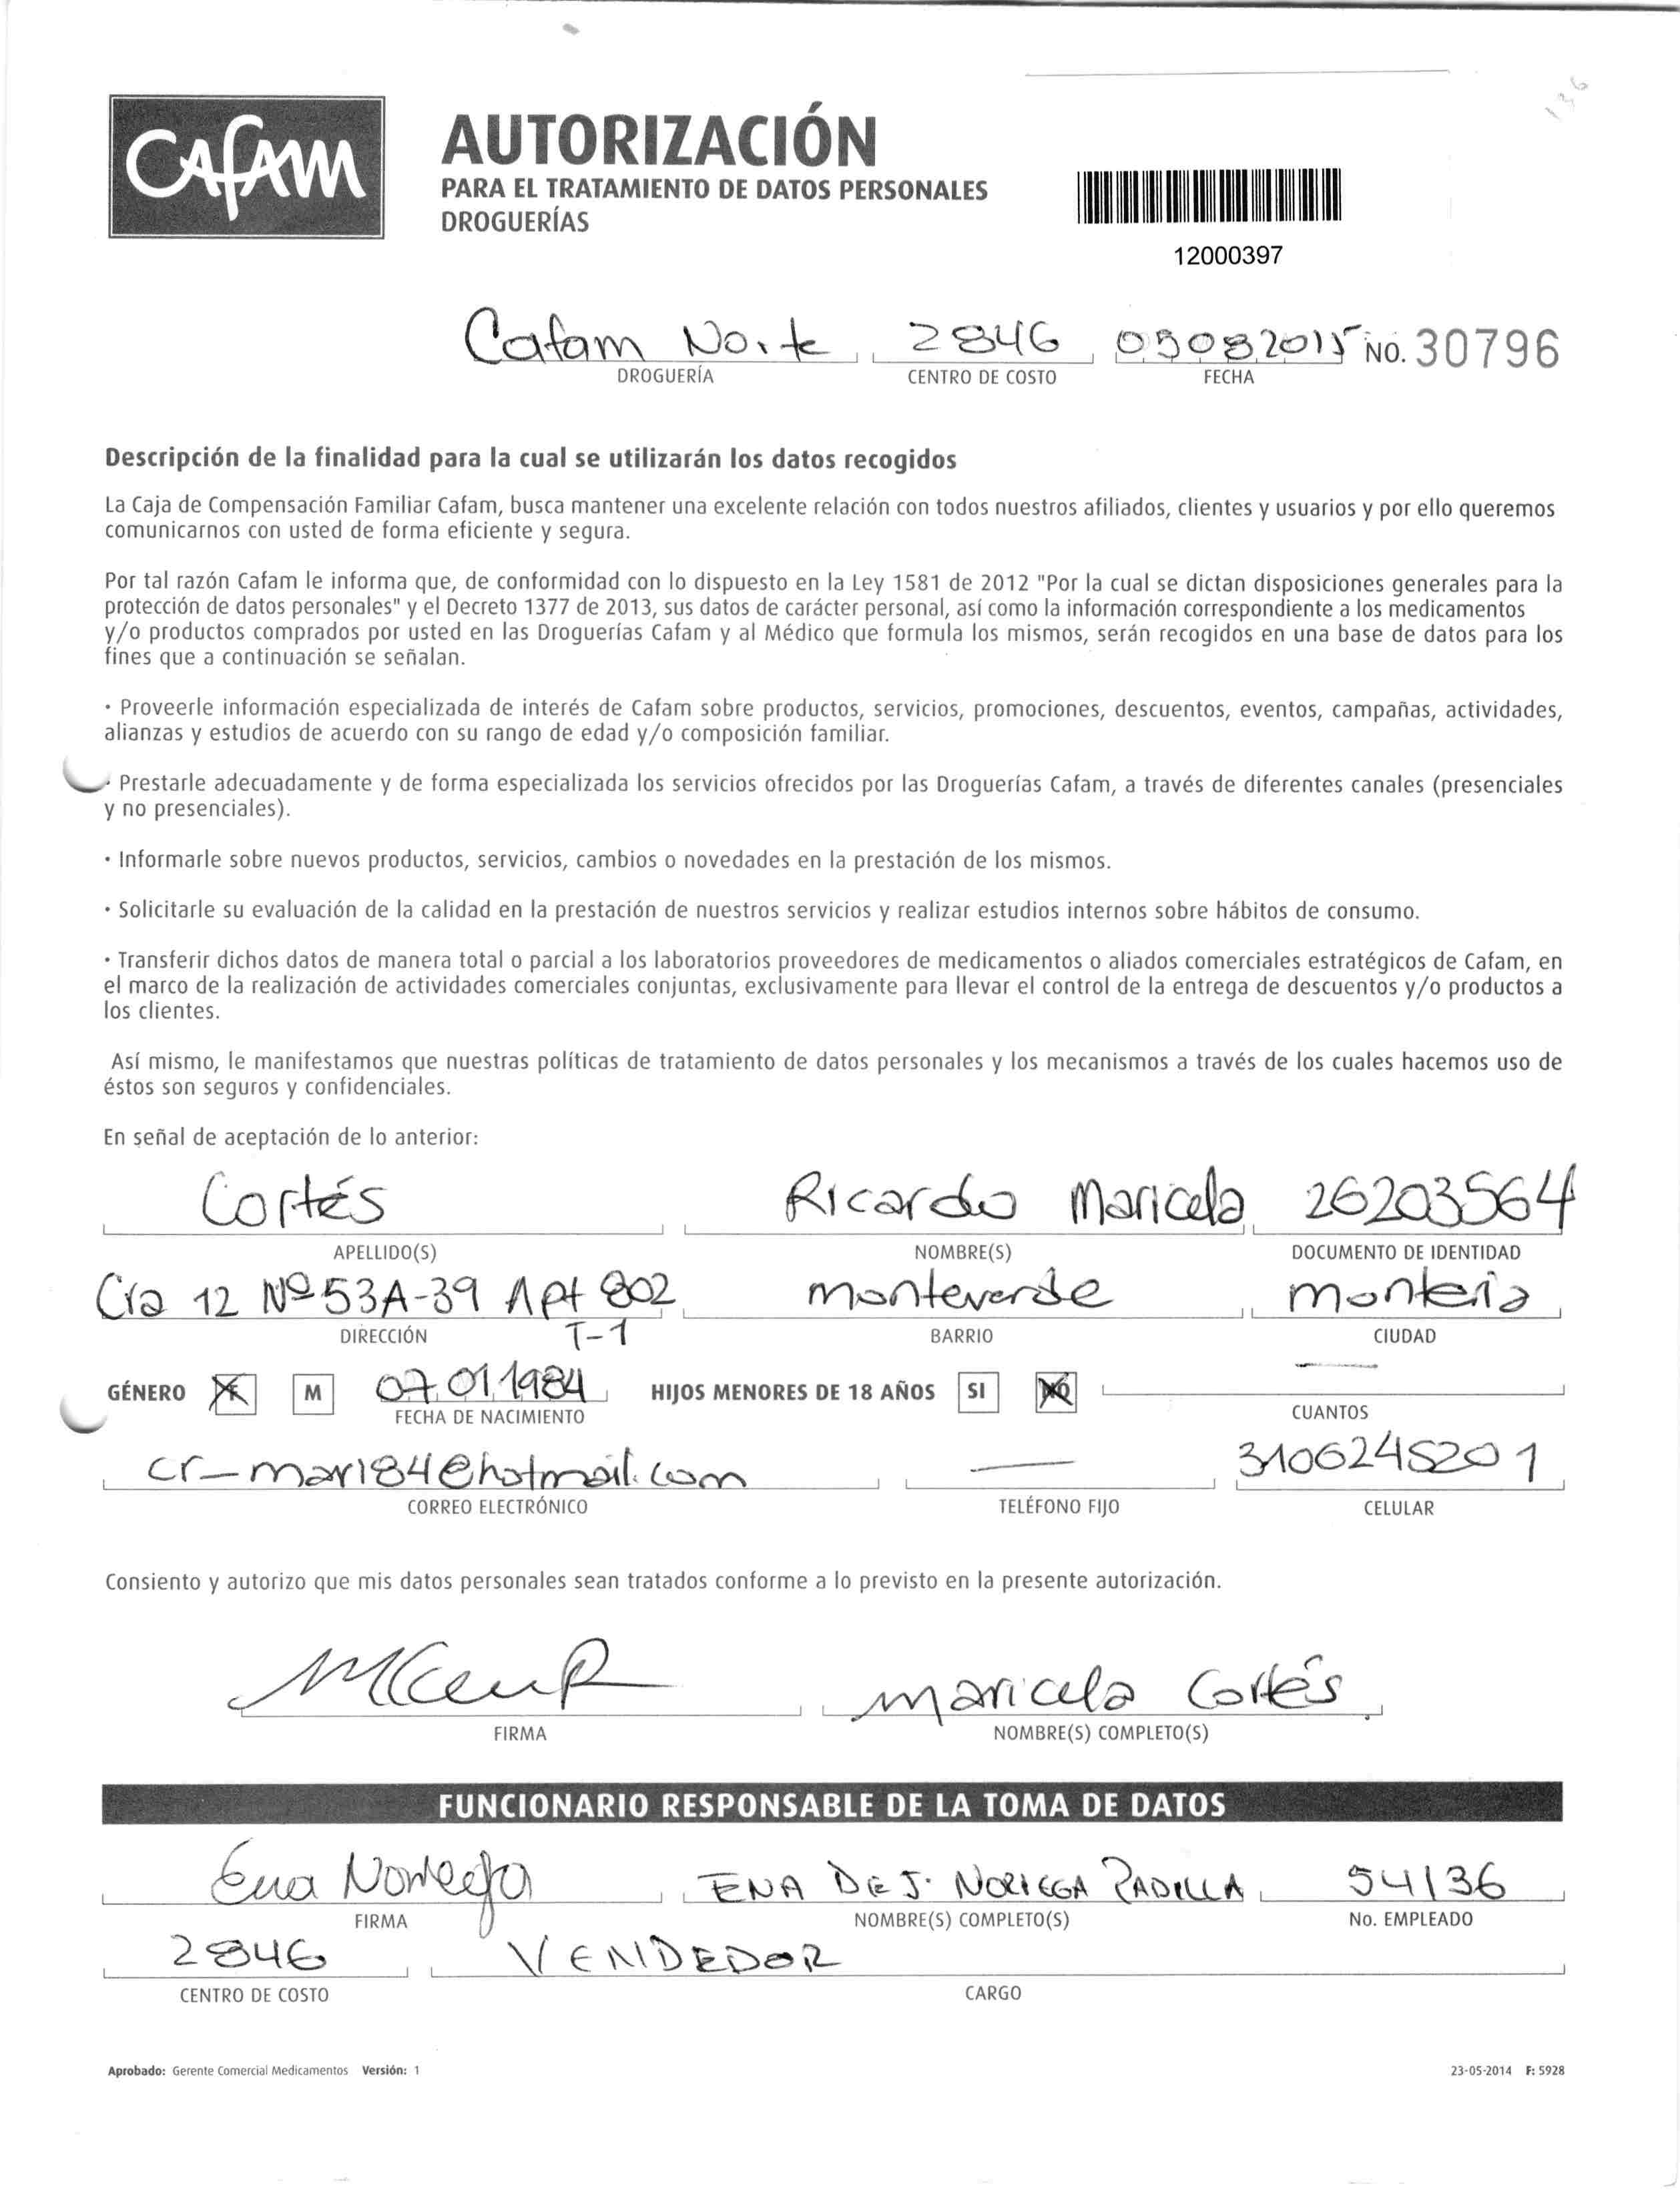 136
CAFAM
AUTORIZACIÓN
PARA EL TRATAMIENTO DE DATOS PERSONALES
DROGUERÍAS
12000397
Cafam Norte 2846 05082015 No. 30796
DROGUERÍA CENTRO DE COSTO FECHA
Descripción de la finalidad para la cual se utilizarán los datos recogidos
La Caja de Compensación Familiar Cafam, busca mantener una excelente relación con todos nuestros afiliados, clientes y usuarios y por ello queremos
comunicarnos con usted de forma eficiente y segura.
Por tal razón Cafam le informa que, de conformidad con lo dispuesto en la Ley 1581 de 2012 "Por la cual se dictan disposiciones generales para la
protección de datos personales" y el Decreto 1377 de 2013, sus datos de carácter personal, así como la información correspondiente a los medicamentos
y/o productos comprados por usted en las Droguerías Cafam y al Médico que formula los mismos, serán recogidos en una base de datos para los
fines que a continuación se señalan.
· Proveerle información especializada de interés de Cafam sobre productos, servicios, promociones, descuentos, eventos, campañas, actividades,
alianzas y estudios de acuerdo con su rango de edad y/o composición familiar.
· Prestarle adecuadamente y de forma especializada los servicios ofrecidos por las Droguerías Cafam, a través de diferentes canales (presenciales
y no presenciales).
· Informarle sobre nuevos productos, servicios, cambios o novedades en la prestación de los mismos.
· Solicitarle su evaluación de la calidad en la prestación de nuestros servicios y realizar estudios internos sobre hábitos de consumo.
· Transferir dichos datos de manera total o parcial a los laboratorios proveedores de medicamentos o aliados comerciales estratégicos de Cafam, en
el marco de la realización de actividades comerciales conjuntas, exclusivamente para llevar el control de la entrega de descuentos y/o productos a
los clientes.
Así mismo, le manifestamos que nuestras políticas de tratamiento de datos personales y los mecanismos a través de los cuales hacemos uso de
éstos son seguros y confidenciales.
En señal de aceptación de lo anterior:
Cortés Ricardo Maricela 26203564
APELLIDO(S) NOMBRE(S) DOCUMENTO DE IDENTIDAD
Cra 12 Nº 53A-39 Apt 802 monteverde monteria
DIRECCIÓN T-1 BARRIO CIUDAD
GÉNERO F M 07.01.1984 HIJOS MENORES DE 18 AÑOS SI NO —
FECHA DE NACIMIENTO CUANTOS
cr_mari84@hotmail.com — 3106245201
CORREO ELECTRÓNICO TELÉFONO FIJO CELULAR
Consiento y autorizo que mis datos personales sean tratados conforme a lo previsto en la presente autorización.
maricela Cortés
FIRMA NOMBRE(S) COMPLETO(S)
FUNCIONARIO RESPONSABLE DE LA TOMA DE DATOS
Ena Noriega ENA DE J. NORIEGA PADILLA 54136
FIRMA NOMBRE(S) COMPLETO(S) No. EMPLEADO
2846 VENDEDOR
CENTRO DE COSTO CARGO
Aprobado: Gerente Comercial Medicamentos Versión: 1 23-05-2014 F: 5928